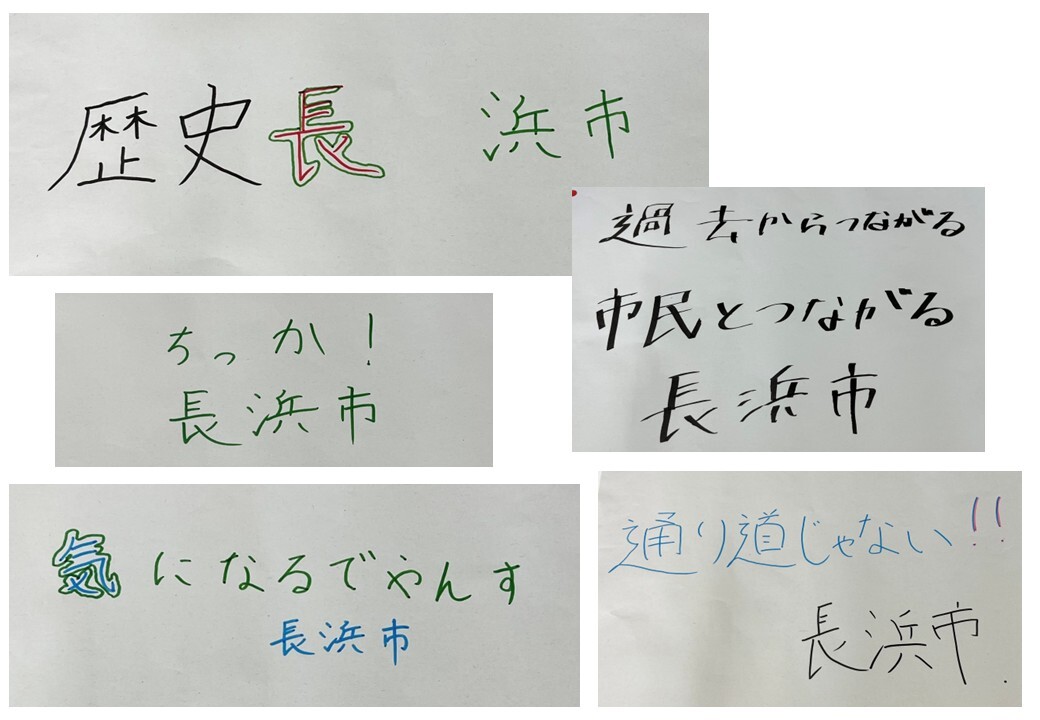 歴史長 浜市
過去からつながる
市民とつながる
長浜市
ちっか!
長浜市
気になるでやんす
長浜市
通り道じゃない!!
長浜市.